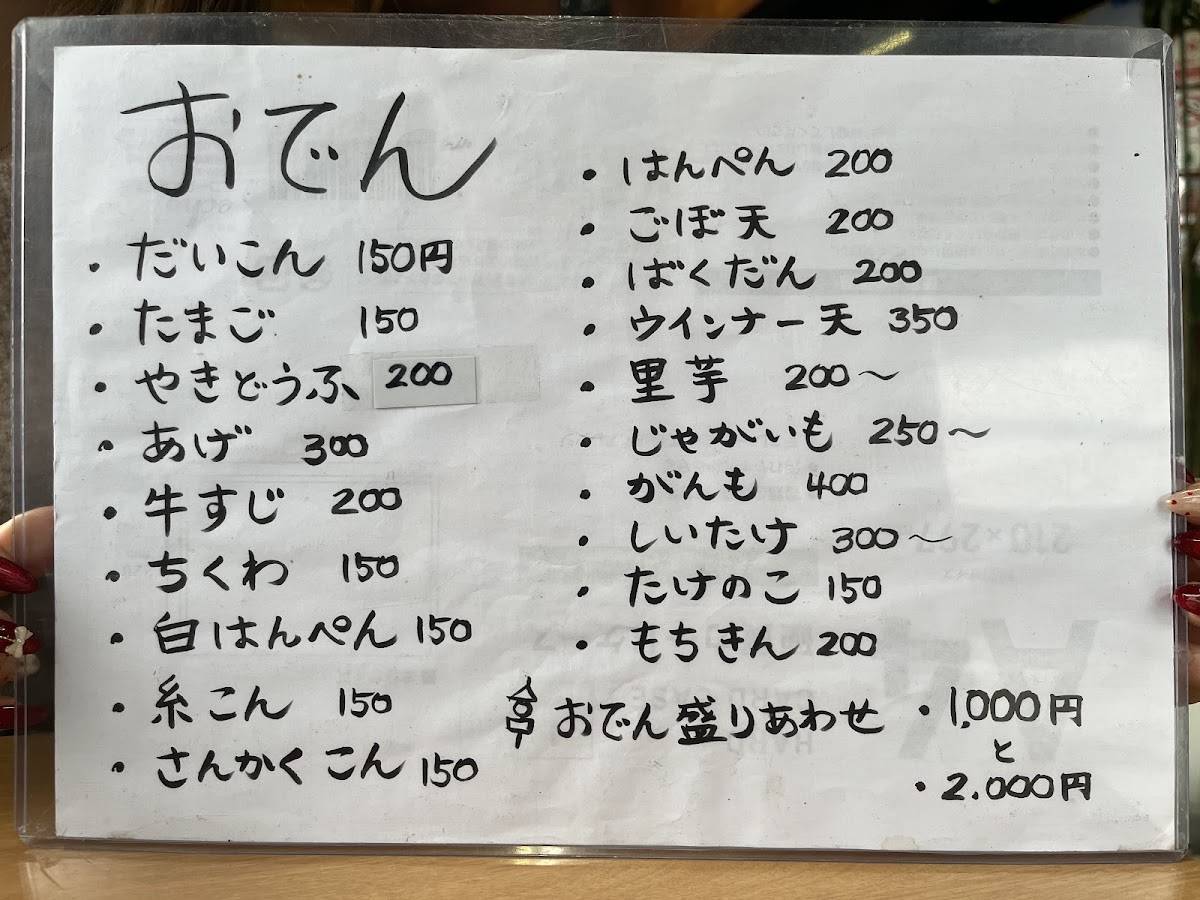 おでん
・だいこん 150円
・たまご 150
・やきどうふ 200
・あげ 300
・牛すじ 200
・ちくわ 150
・白はんぺん 150
・糸こん 150
・さんかくこん 150
・はんぺん 200
・ごぼ天 200
・ばくだん 200
・ウインナー天 350
・里芋 200〜
・じゃがいも 250〜
・がんも 400
・しいたけ 300〜
・たけのこ 150
・もちきん 200
おでん盛りあわせ ・1,000円
と
・2.000円